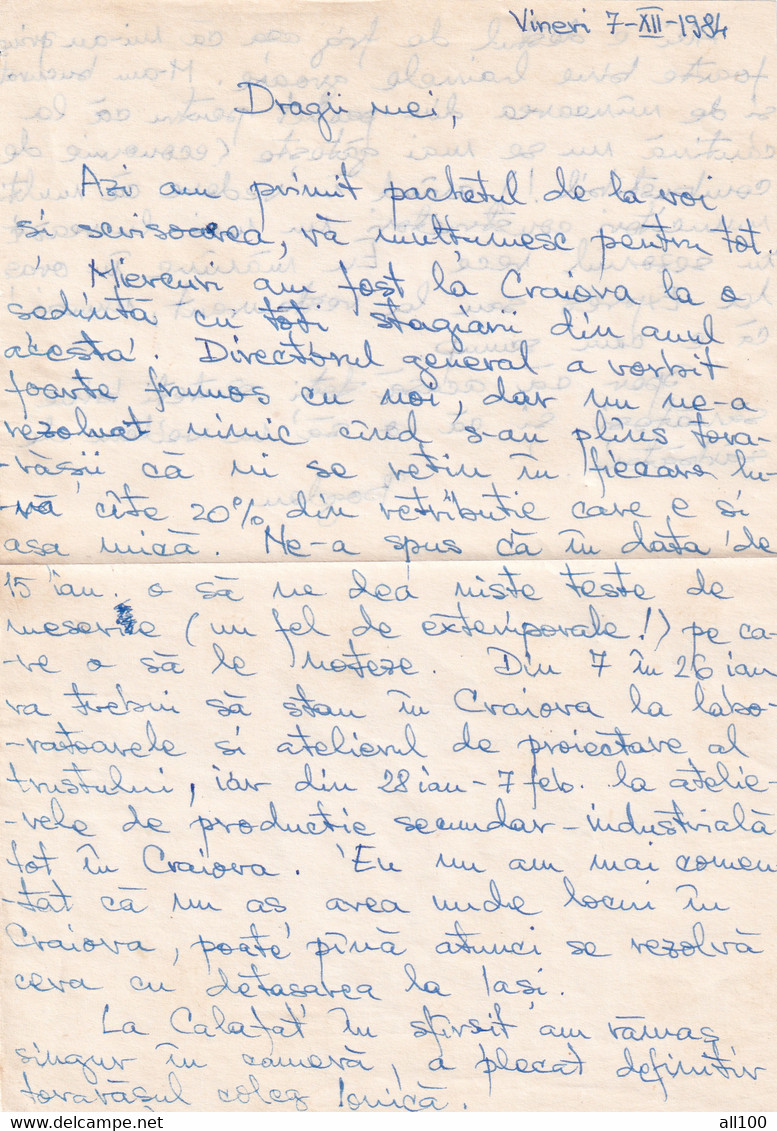 Vineri 7-XII-1984
Dragii mei,
Azi am primit pachetul de la voi
și scrisoarea, vă mulțumesc pentru tot.
Miercuri am fost la Craiova la o
ședință cu toți stagiarii din anul
acesta. Directorul general a vorbit
foarte frumos cu noi, dar nu ne-a
rezolvat nimic cînd s-au plîns tova-
-rășii că ni se rețin în fiecare lu-
-nă cîte 20% din retribuție care e și
așa mică. Ne-a spus că în data de
15 ian. o să ne dea niște teste de
meserie (un fel de extemporale!) pe ca-
-re o să le noteze. Din 7 în 26 ian
va trebui să stau în Craiova la labo-
-ratoarele și atelierul de proiectare al
trustului, iar din 28 ian - 7 feb. la atelie-
-rele de producție secundar-industrială
tot în Craiova. Eu nu am mai comen
-tat că nu aș avea unde locui în
Craiova, poate pînă atunci se rezolvă
ceva cu detașarea la Iași.
La Calafat în sfîrșit am rămas
singur în cameră, a plecat definitiv
tovarășul coleg Ionică.
all100